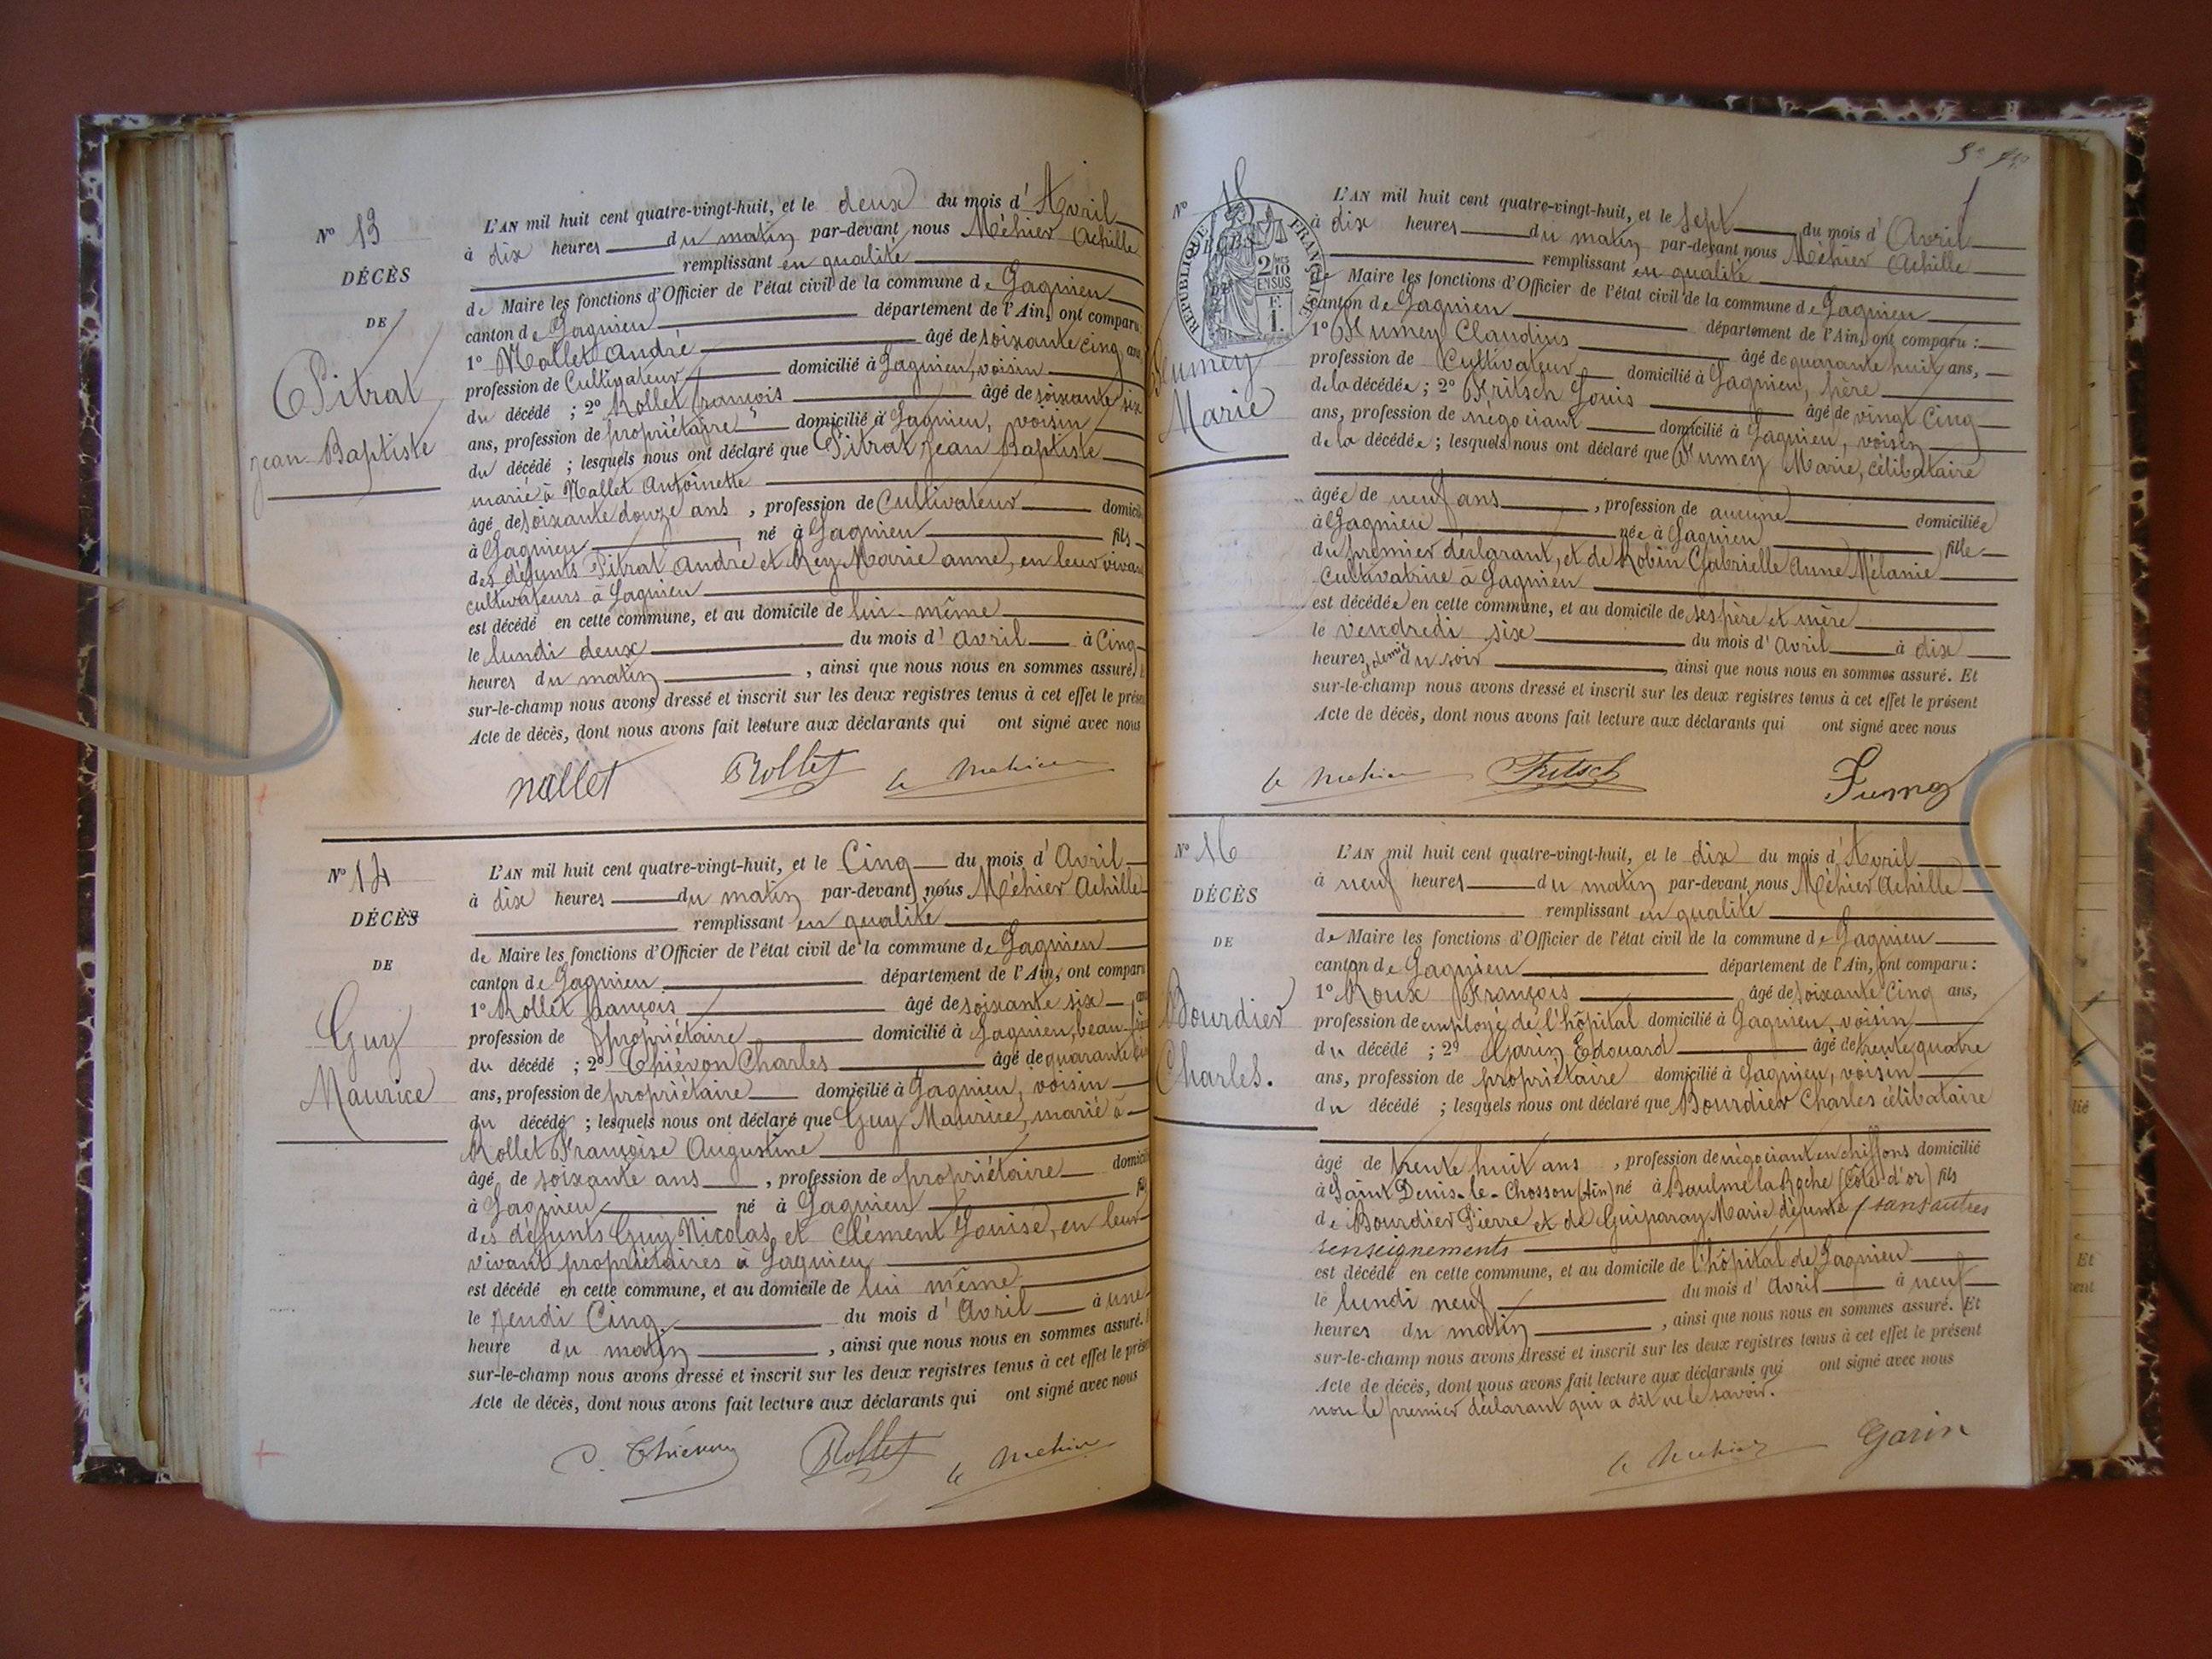 N° 13
DÉCÈS
DE
Pitrat
Jean Baptiste
L'AN mil huit cent quatre-vingt-huit, et le deux du mois d'Avril
à dix heures du matin par-devant nous Méhier Achille
remplissant en qualité
de Maire les fonctions d'Officier de l'état civil de la commune de Lagnieu
canton de Lagnieu département de l'Ain, ont comparu:
1° Nallet André âgé de soixante cinq ans
profession de Cultivateur domicilié à Lagnieu, voisin
du décédé ; 2° Rollet françois âgé de soixante six
ans, profession de propriétaire domicilié à Lagnieu, voisin
du décédé ; lesquels nous ont déclaré que Pitrat Jean Baptiste
marié à Nallet Antoinette
âgé de soixante douze ans , profession de Cultivateur domici
à Lagnieu né à Lagnieu fils
des défunts Pitrat André et Rey Marie anne, en leur vivan
cultivateurs à Lagnieu
est décédé en cette commune, et au domicile de lui-même
le lundi deux du mois d'avril à Cinq
heures du matin , ainsi que nous nous en sommes assuré.
sur-le-champ nous avons dressé et inscrit sur les deux registres tenus à cet effet le prése
Acte de décès, dont nous avons fait lecture aux déclarants qui ont signé avec nous
nallet Rollet a Mehier
N° 14
DÉCÈS
DE
Guy
Maurice
L'AN mil huit cent quatre-vingt-huit, et le Cinq du mois d'Avril
à dix heures du matin par-devant nous Méhier Achille
remplissant en qualité
de Maire les fonctions d'Officier de l'état civil de la commune de Lagnieu
canton de Lagnieu département de l'Ain, ont comparu
1° Rollet françois âgé de soixante six ans
profession de propriétaire domicilié à Lagnieu, beau-frère
du décédé ; 2° Thiévon Charles âgé de quarante
ans, profession de propriétaire domicilié à Lagnieu, voisin
du décédé ; lesquels nous ont déclaré que Guy Maurice, marié à
Rollet Françoise Augustine
âgé de soixante ans , profession de propriétaire domici
à Lagnieu né à Lagnieu fi
des défunts Guy Nicolas et Clément Louise, en leur
vivant propriétaires à Lagnieu
est décédé en cette commune, et au domicile de lui même
le jeudi Cinq du mois d'Avril à une
heure du matin , ainsi que nous nous en sommes assuré.
sur-le-champ nous avons dressé et inscrit sur les deux registres tenus à cet effet le prése
Acte de décès, dont nous avons fait lecture aux déclarants qui ont signé avec nous
Rollet a Mehier
N° 15
RÉPUBLIQUE FRANÇAISE
2/10 EN SUS
1 F.
Fumey
Marie
L'AN mil huit cent quatre-vingt-huit, et le Sept du mois d'Avril
à dix heures du matin par-devant nous Méhier Achille
remplissant en qualité
de Maire les fonctions d'Officier de l'état civil de la commune de Lagnieu
canton de Lagnieu département de l'Ain, ont comparu :
1° Fumey Claudius âgé de quarante huit ans,
profession de Cultivateur domicilié à Lagnieu, père
de la décédée ; 2° Fritsch Louis âgé de vingt Cinq
ans, profession de négociant domicilié à Lagnieu, voisin
de la décédée ; lesquels nous ont déclaré que Fumey Marie, célibataire
âgée de neuf ans , profession de aucune domiciliée
à Lagnieu née à Lagnieu fille
du premier déclarant, et de Robin Gabrielle Anne Mélanie
Cultivatrice à Lagnieu
est décédée en cette commune, et au domicile de ses père et mère
le Vendredi six du mois d'Avril à dix
heures et demie du soir , ainsi que nous nous en sommes assuré. Et
sur-le-champ nous avons dressé et inscrit sur les deux registres tenus à cet effet le présent
Acte de décès, dont nous avons fait lecture aux déclarants qui ont signé avec nous
a Mehier Fritsch Fumey
N° 16
DÉCÈS
DE
Bourdier
Charles.
L'AN mil huit cent quatre-vingt-huit, et le dix du mois d'Avril
à neuf heures du matin par-devant nous Méhier Achille
remplissant en qualité
de Maire les fonctions d'Officier de l'état civil de la commune de Lagnieu
canton de Lagnieu département de l'Ain, ont comparu :
1° Roux François âgé de soixante Cinq ans,
profession de employé de l'hôpital domicilié à Lagnieu, voisin
du décédé ; 2° Garin Edouard âgé de trente quatre
ans, profession de propriétaire domicilié à Lagnieu, voisin
du décédé ; lesquels nous ont déclaré que Bourdier Charles célibataire
âgé de trente huit ans , profession de négociant en chiffons domicilié
à Saint Denis-le-Chosson (Ain) né à Baulme la Roche (Côte d'or) fils
de Bourdier Pierre et de Guiparay Marie défunte (sans autres
renseignements
est décédé en cette commune, et au domicile de l'hôpital de Lagnieu
le lundi neuf du mois d'Avril à neuf
heures du matin , ainsi que nous nous en sommes assuré. Et
sur-le-champ nous avons dressé et inscrit sur les deux registres tenus à cet effet le présent
Acte de décès, dont nous avons fait lecture aux déclarants qui ont signé avec nous
non le premier déclarant qui a dit ne le savoir.
a Mehier Garin